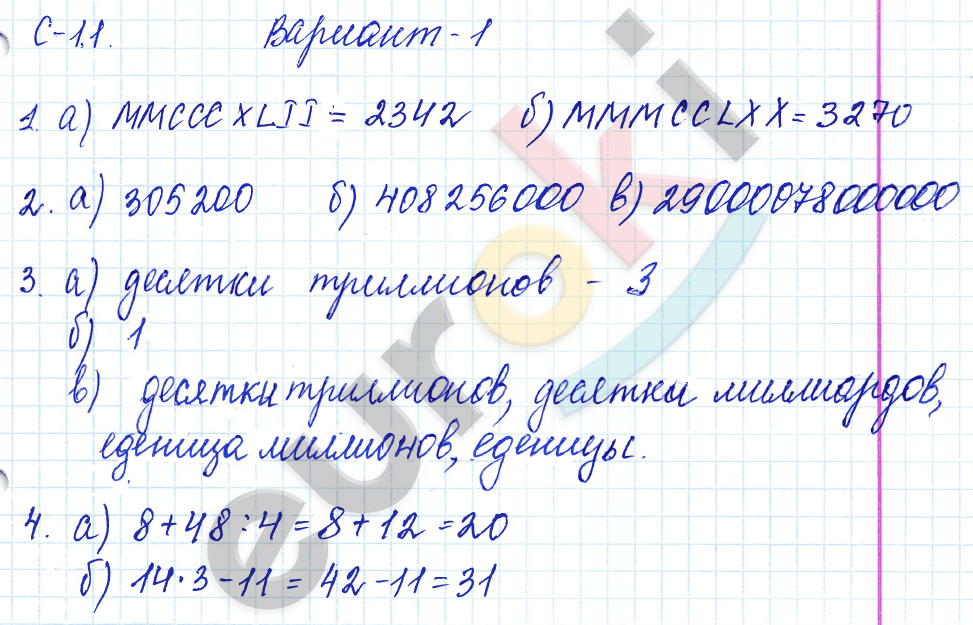 С-1.1. Вариант-1
1. а) MMCCCXLII = 2342 б) MMMCCLXX = 3270
2. а) 305200 б) 408256000 в) 29000078000000
3. а) десятки триллионов - 3
б) 1
в) десятки триллионов, десятки миллиардов,
еденица миллионов, еденицы.
4. а) 8+48:4=8+12=20
б) 14·3-11=42-11=31
euroki